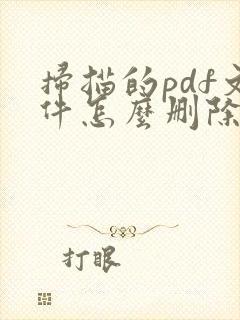 掃描的pdf文
件怎麼刪除
打眼